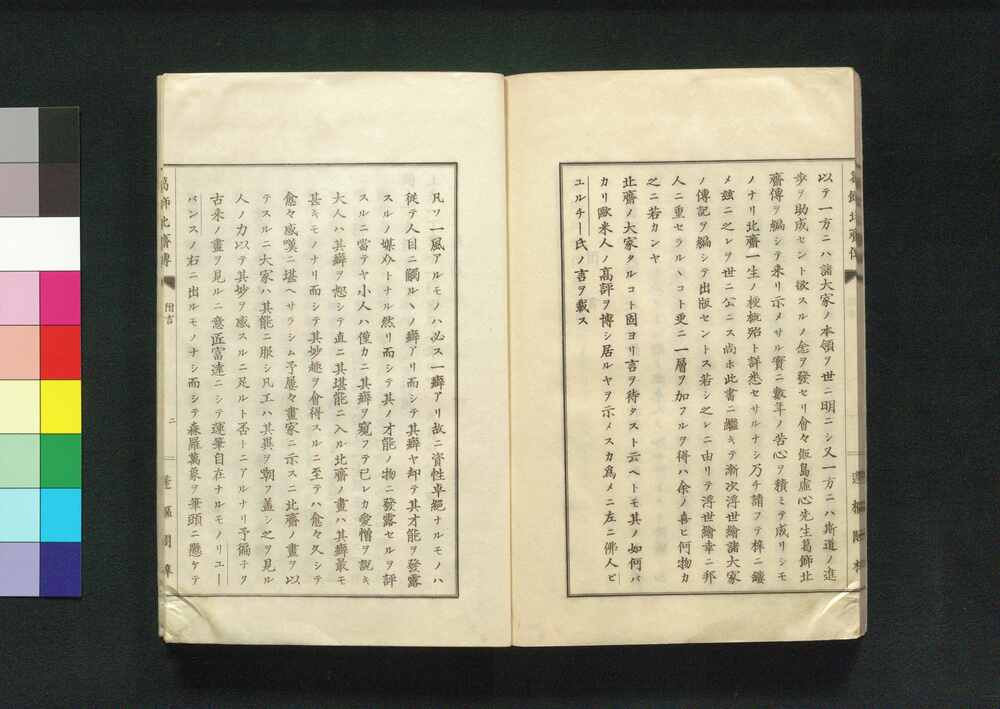 以テ一方ニハ諸大家ノ本領ヲ世ニ明ニシ又一方ニハ斯道ノ進
歩ヲ助成セント欲スルノ念ヲ發セリ會々飯島虚心先生葛飾北
齋傳ヲ編シテ来リ示メサル實ニ數年ノ苦心ヲ積ミテ成リシモ
ノナリ北齋一生ノ梗概殆ト詳悉セサルナシ乃チ請フテ梓ニ鏤
メ玆ニ之レヲ世ニ公ニス尚ホ此書ニ繼キテ漸次浮世繪諸大家
ノ傳記ヲ編シテ出版セントス若シ之レニ由リテ浮世繪幸ニ邦
人ニ重セラルヽコト更ニ一層ヲ加フルヲ得ハ余ノ喜ヒ何物カ
之ニ若カンヤ
北齋ノ大家タルコト固ヨリ言ヲ待タスト云ヘトモ其ノ如何バ
カリ歐米人ノ高評ヲ博シ居ルヤヲ示メスカ爲メニ左ニ佛人ビ
ユルチー氏ノ言ヲ載ス
葛飾北齋傳
附言
二
蓬樞閣梓
凡ソ一風アルモノハ必ス一癖アリ故ニ資性卓絶ナルモノハ
從テ人目ニ觸ルヽノ癖アリ而シテ其癖ヤ却テ其才能ヲ發露
スルノ媒介トナル然リ而シテ其ノ才能ノ物ニ發露セルヲ評
スルニ當テヤ小人ハ僅カニ其癖ヲ窺フテ己レカ愛憎ヲ説キ
大人ハ其癖ヲ恕シテ直ニ其堪能ニ入ル北齋ノ畫ハ其癖最モ
甚キモノナリ而シテ其妙趣ヲ會得スルニ至テハ愈々久シテ
愈々感嘆ニ堪ヘサラシム予屡々畫家ニ示スニ北齋ノ畫ヲ以
テスルニ大家ハ其能ニ服シ凡工ハ其異ヲ嘲フ蓋シ之ヲ見ル
人ノ力以テ其妙ヲ感スルニ足ルト否トニアルナリ予徧チク
古来ノ畫ヲ見ルニ意匠富逹ニシテ運筆自在ナルモノリユー
バンスノ右ニ出ルモノナシ而シテ森羅萬象ヲ筆頭ニ懸ケテ